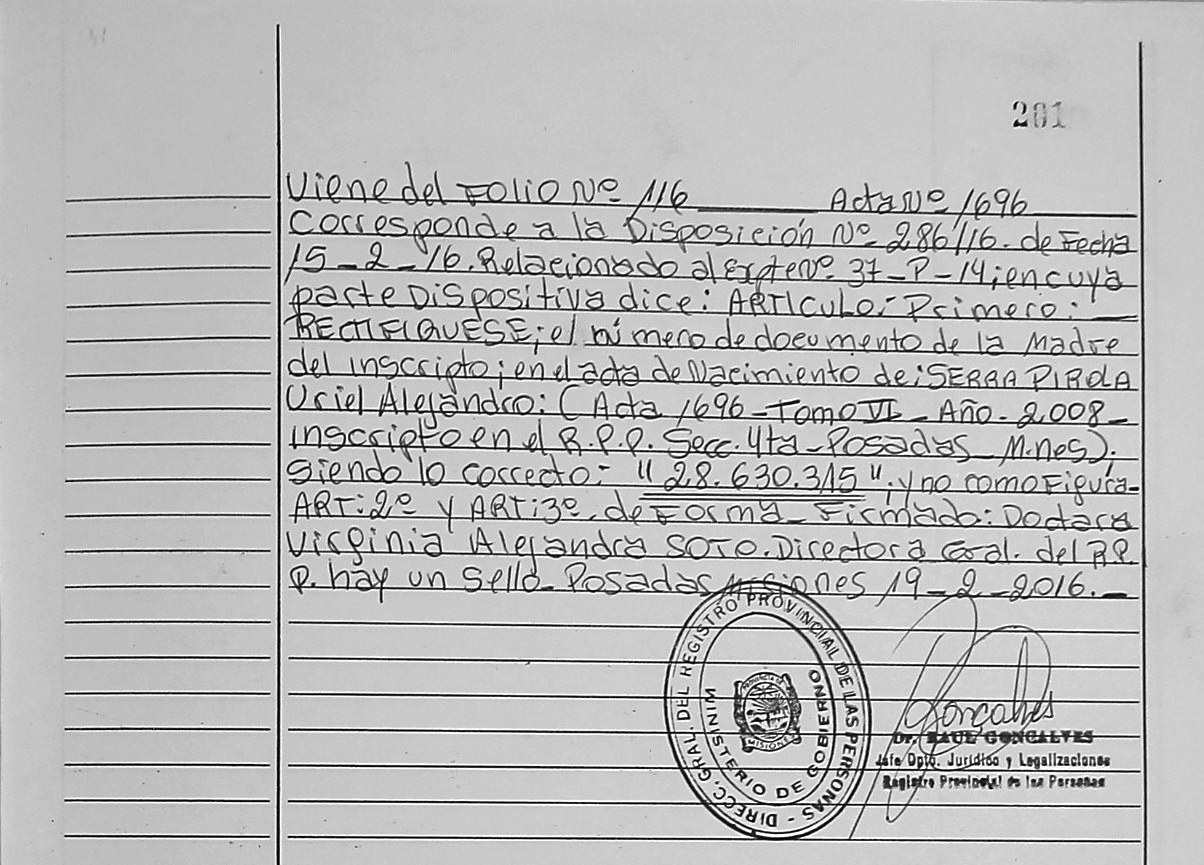 201
Viene del Folio Nº 116 Acta Nº 1696
Corresponde a la Disposición Nº 286/16. de Fecha
15-2-16. Relacionado al expte Nº 37-P-14; en cuya
parte Dispositiva dice: ARTICULO: Primero:
RECTIFIQUESE; el número de documento de la Madre
del Inscripto; en el acta de Nacimiento de: SERRA PIROLA
Uriel Alejandro: (Acta 1696-Tomo VI-Año-2.008-
inscripto en el R.P.P. Secc. 4ta-Posadas-M.nes).
siendo lo correcto: "28.630.315"; y no como Figura-
ART: 2º y ART: 3º. de Forma-Firmado: Doctora
Virginia Alejandra SOTO. Directora Gral. del R.P.
P. hay un Sello-Posadas, Misiones 19-2-2016.-
DIRECC. GRAL. DEL REGISTRO PROVINCIAL DE LAS PERSONAS -
MINISTERIO DE GOBIERNO
PROVINCIA DE
MISIONES
Goncalves
Dr. RAUL GONCALVES
Jefe Dpto. Jurídico y Legalizaciones
Registro Provincial de las Personas